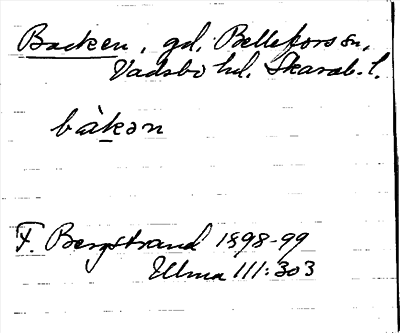 Backen, gd, Bellefors sn,
Vadsbo hd. Skarab. l.
bàkən
F. Bergstrand 1898-99
Ulma 111: 303